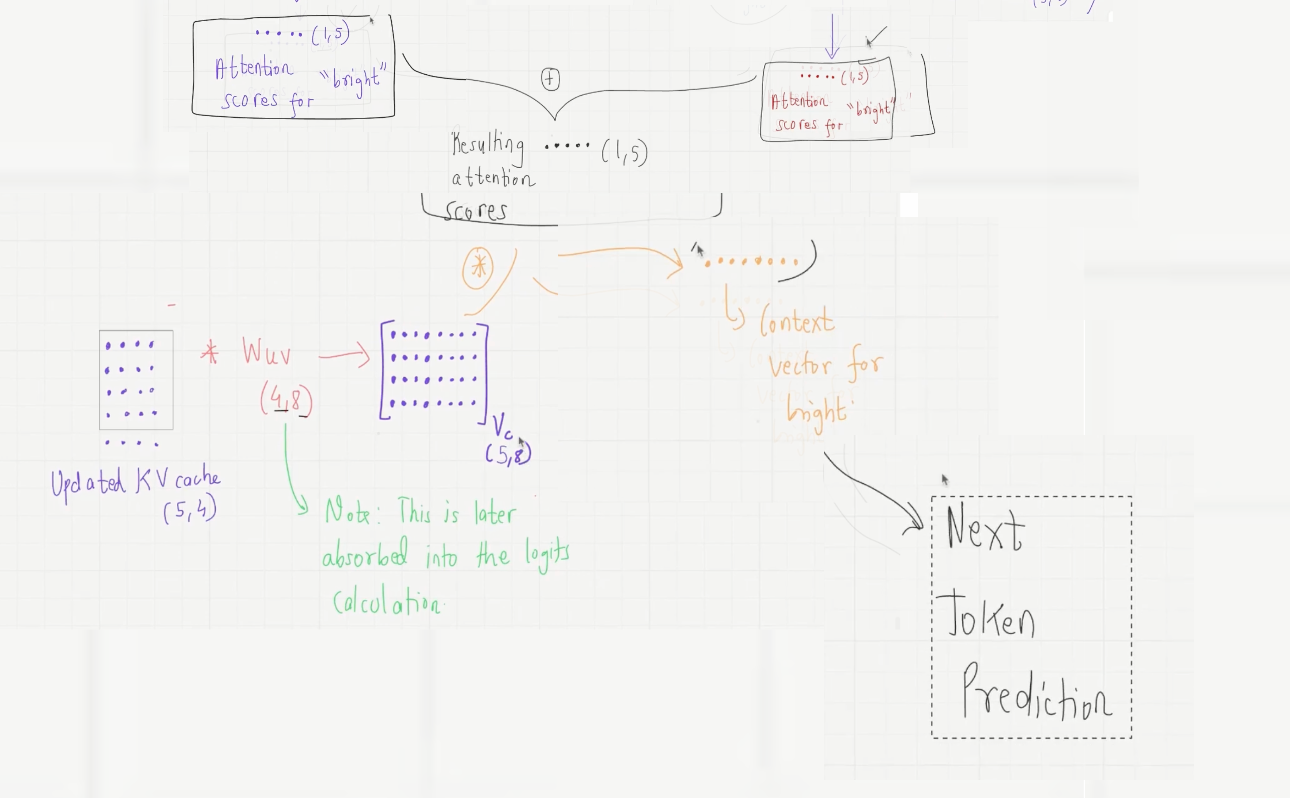 (1,5)
Attention
scores for "bright"
+
(1,5)
Attention
scores for "bright"
Resulting (1,5)
attention
scores
*
* Wuv
(4,8)
Vc
(5,8)
Updated KV cache
(5,4)
Note: This is later
absorbed into the logits
Calculation
Context
vector for
bright
Next
Token
Prediction